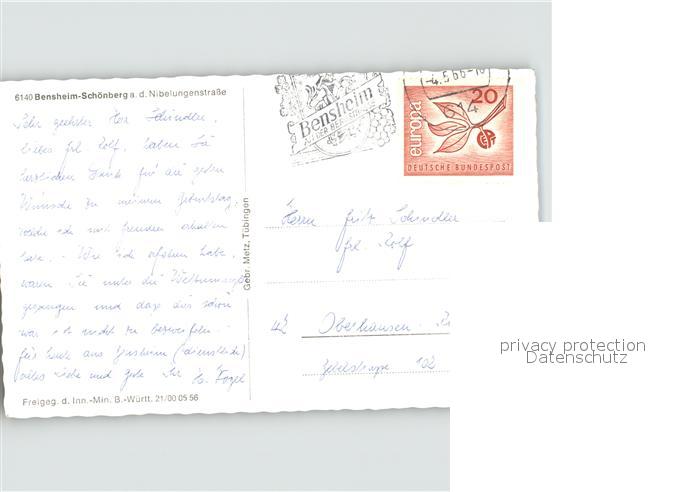 6140 Bensheim-Schönberg a. d. Nibelungenstraße
Sehr geehrter Herr Schindler,
liebes Frl. Rolf, haben Sie
herzlichen Dank für die guten
Wünsche zu meinem Geburtstag,
welche ich mit Freuden erhalten
habe. - Wie ich erfahren habe,
waren Sie unter die
gegangen und dass das schön
war ist nicht zu bezweifeln.
für heute aus Bensheim (dienstlich)
alles Liebe und Gute Ihr H. Vogel
Freigeg. d. Inn.-Min. B.-Württ. 21/00 05 56
Gebr. Metz, Tübingen
Bensheim
-4.5.66-10
614
europa
20
DEUTSCHE BUNDESPOST
Herrn Fritz Schindler
Frl. Rolf
42 Oberhausen -
102
privacy protection
Datenschutz